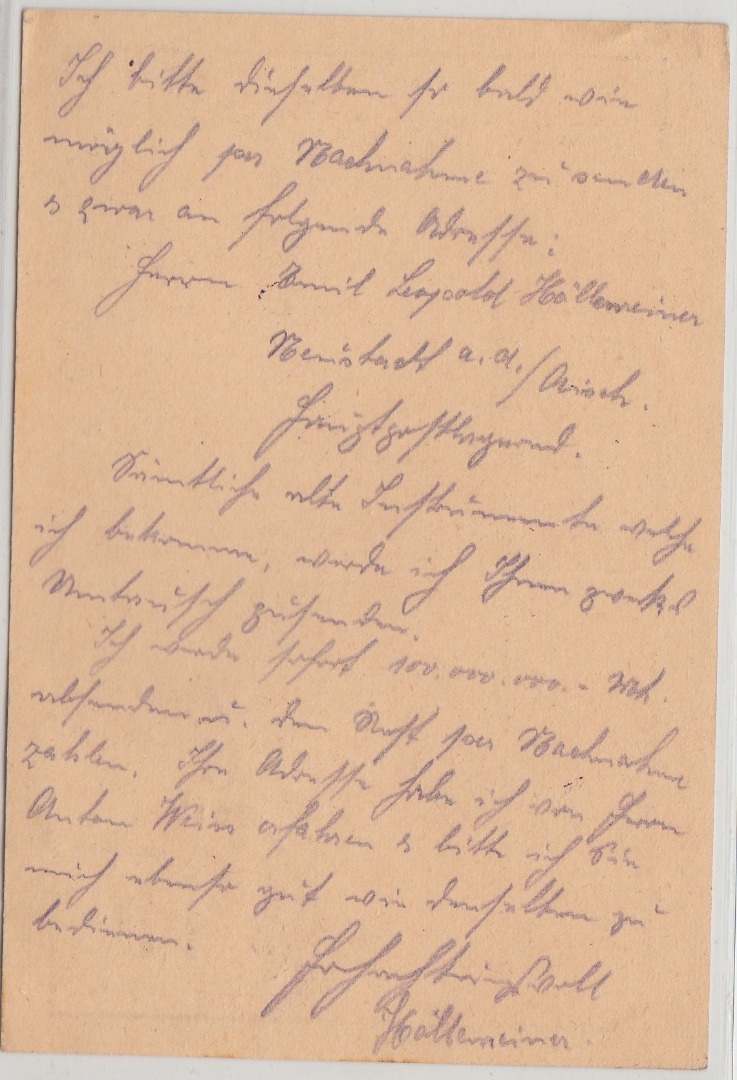 Ich bitte dieselben so bald wie
möglich per Nachnahme zu senden
& zwar an folgende Adresse:
Herrn Emil Leopold Höllerweiner
Neustadt a. d./Aisch.
Hauptpostlagernd.
Sämtliche alte Instrumente welche
ich bekomme, werde ich Ihnen zwecks
Umtausch zusenden.
Ich werde sofort 100.000.000.- Mk.
absenden u. den Rest per Nachnahme
zahlen. Ihre Adresse habe ich von Herrn
Anton erfahren & bitte ich Sie
mich ebenso gut wie denselben zu
bedienen.
Hochachtungsvoll
Höllerweiner.